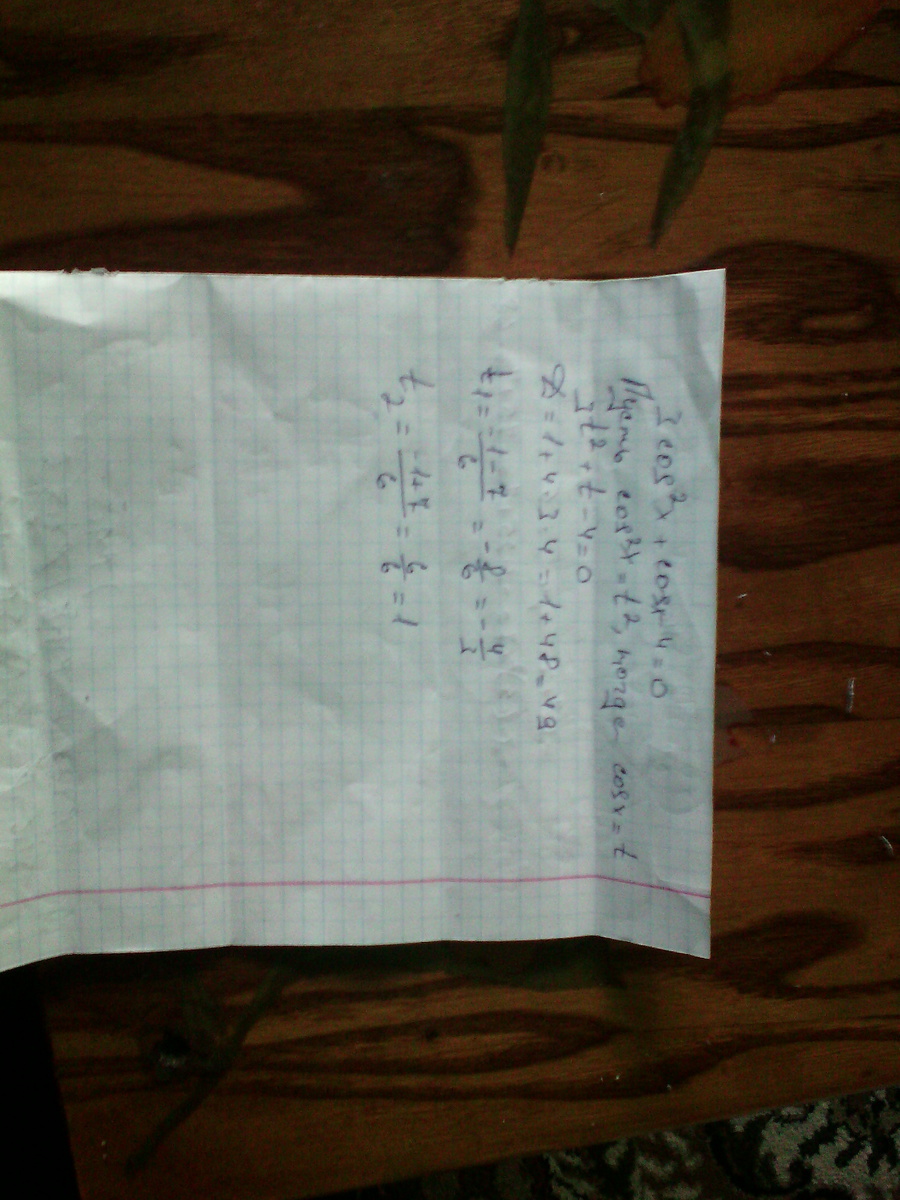 3cos²x + cosx - 4 = 0
Пусть cos²x = t², тогда cosx = t
3t² + t - 4 = 0
D = 1 + 4·3·4 = 1 + 48 = 49
t₁ = (-1-7)/6 = -8/6 = -4/3
t₂ = (-1+7)/6 = 6/6 = 1